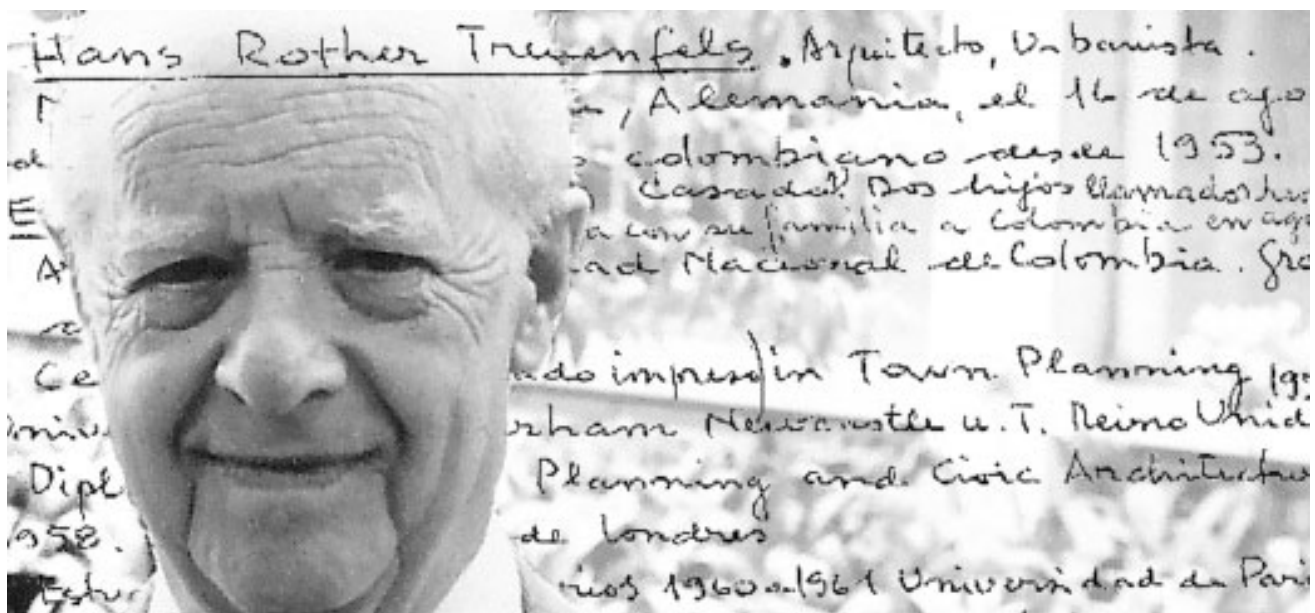 Hans Rother Treuenfels. Arquitecto, Urbanista.
, Alemania, el 16 de ago
colombiano desde 1953.
E Casado? Dos hijos llamados
a con su familia a Colombia en ag
A ad Nacional de Colombia. Gra
Ce ado impreso) in Town Planning 195
Unive rham Newcastle u.T. Reino Unid
Dipl Planning and Civic Architectu
1958. de Londres
Estu rios 1960-1961 Universidad de Pari